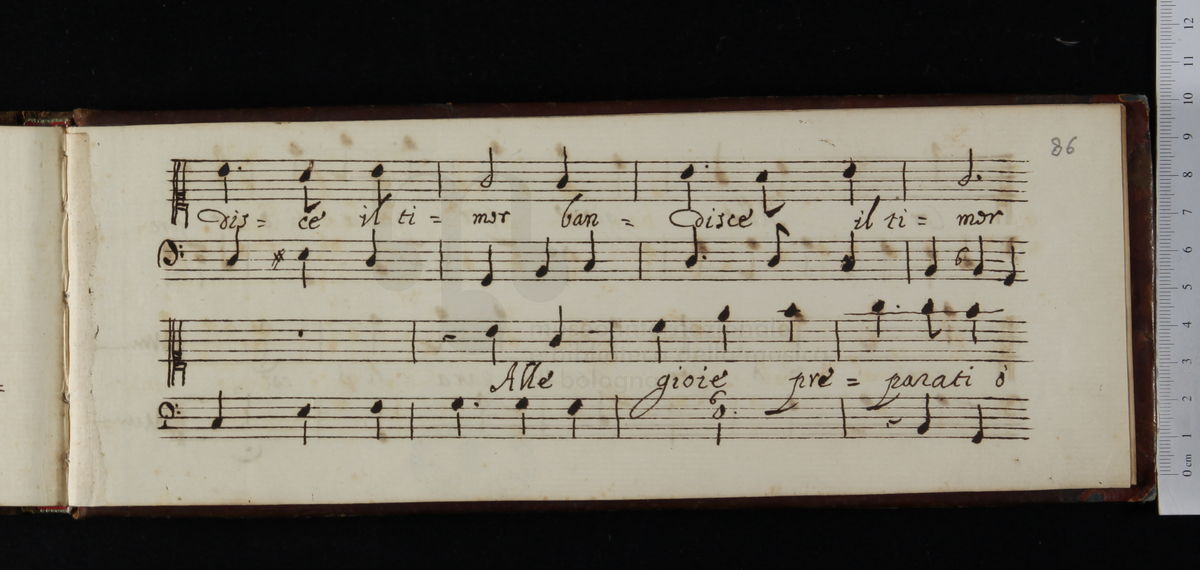 86
dis = ce il ti = mor ban = disce il ti = mor
6
Alle gioie pre = parati ò
6
0 cm 1 2 3 4 5 6 7 8 9 10 11 12